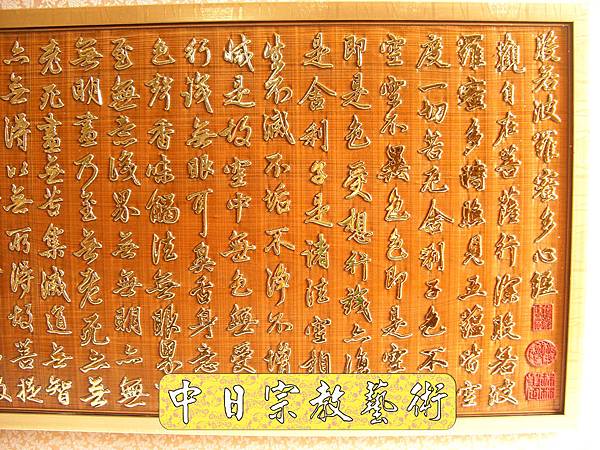 般若波羅蜜多心經
觀自在菩薩行深般若波
羅蜜多時照見五蘊皆空
度一切苦厄舍利子色不
空空不異色色即是空
即是色受想行識亦復
是舍利子是諸法空相
生不滅不垢不淨不增
減是故空中無色無受
行識無眼耳鼻舌身意
色聲香味觸法無眼界
至無意識界無無明亦無
無明盡乃至無老死亦無
老死盡無苦集滅道無智
亦無得以無所得故菩提
中日宗教藝術